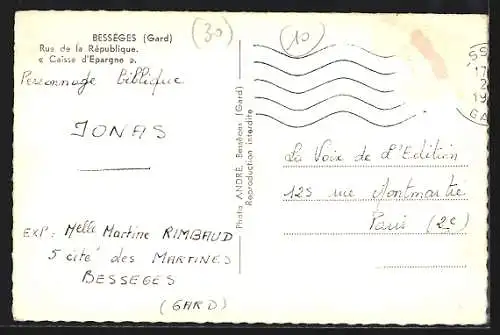 BESSÈGES (Gard)
Rue de la République.
« Caisse d'Epargne ».
(30)
(10)
Personnage biblique
JONAS
EXP: Melle Martine RIMBAUD
5 cité des MARTINES
BESSEGES
(GARD)
Photo ANDRÉ, Bessèges (Gard)
Reproduction interdite
SS
17
2
19
GA
La Voix de l'Edition
125 rue Montmartre
Paris (2e)